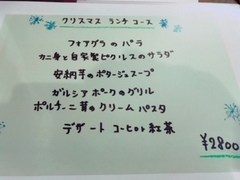 クリスマス ランチ コース
フォアグラ の パテ
カニ身と自家製ピクルスのサラダ
安納芋のポタージュスープ
ガルシアポークのグリル
ポルチーニ茸のクリームパスタ
デザート コーヒーor紅茶
¥2800